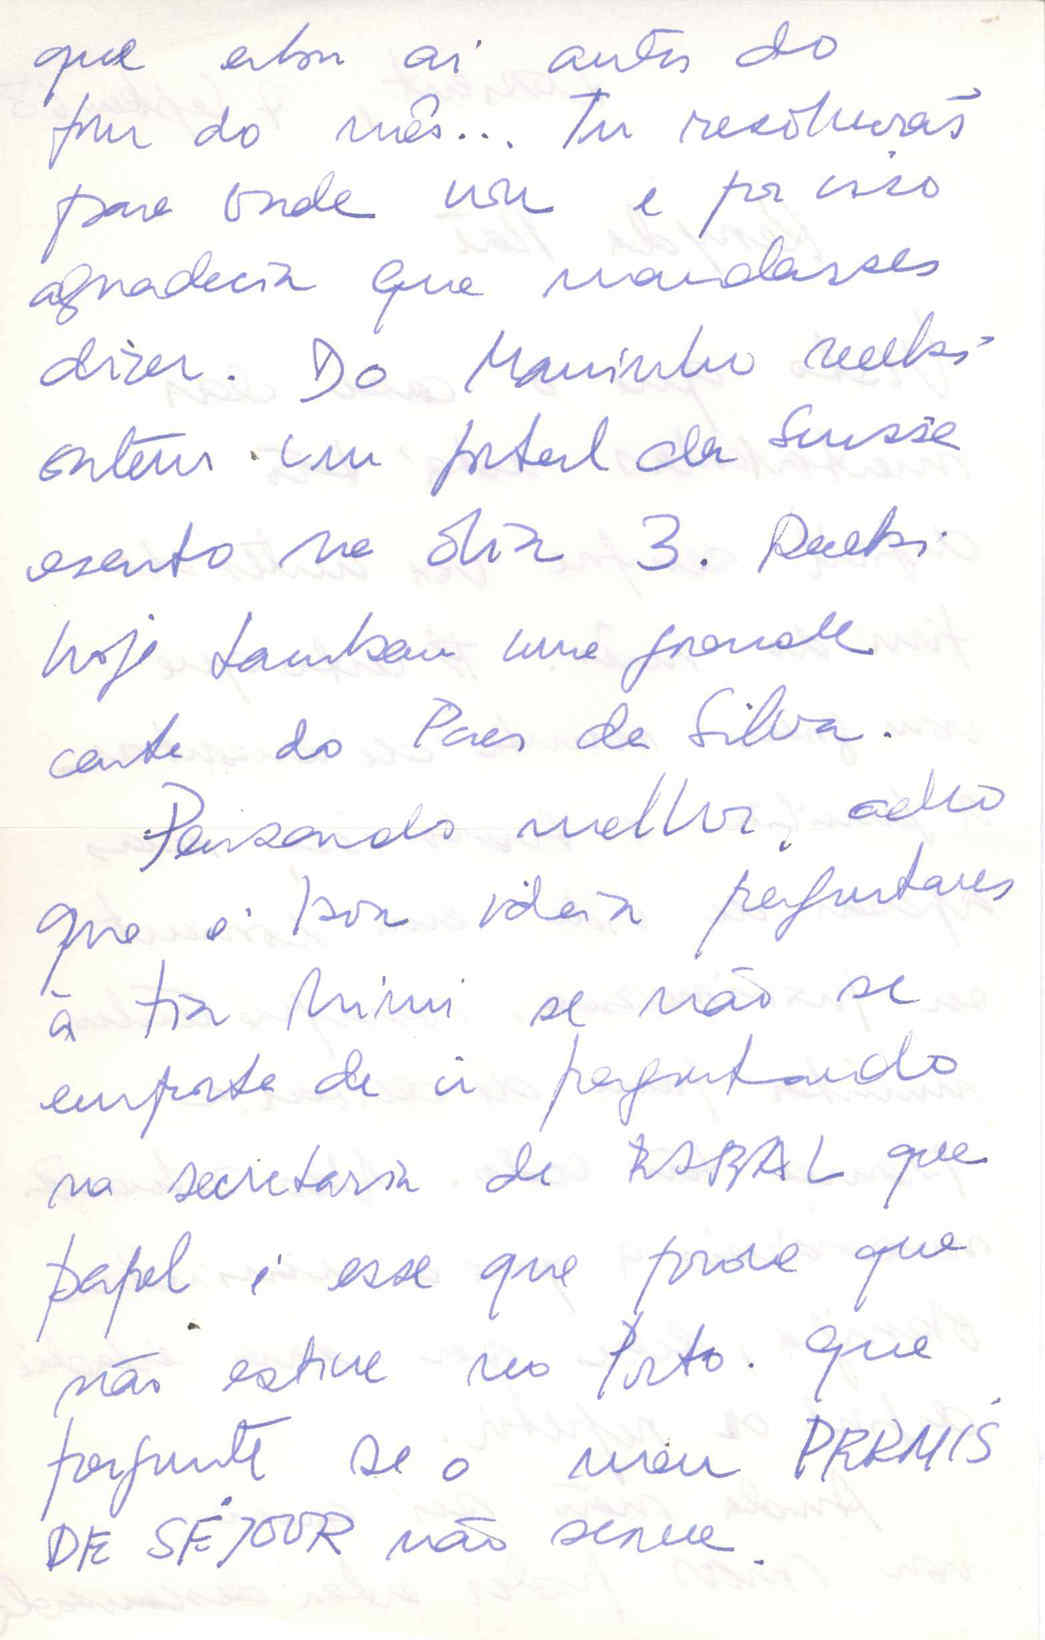 que estou aí antes do
fim do mês... Tu resolverás
para onde vou e por isso
agradecia que mandasses
dizer. Do Maninho recebi
ontem um postal da Suissa
escrito no dia 3. Recebi
hoje tambem uma grande
carta do Paes da Silva.
Pensando melhor, acho
que é boa ideia perguntares
à tia Mimi se não se
emporta de ir perguntando
na secretaria de que
papel é esse que prova que
não estive no Porto. Que
pergunte se o meu PERMIS
DE SÉJOUR não serve.